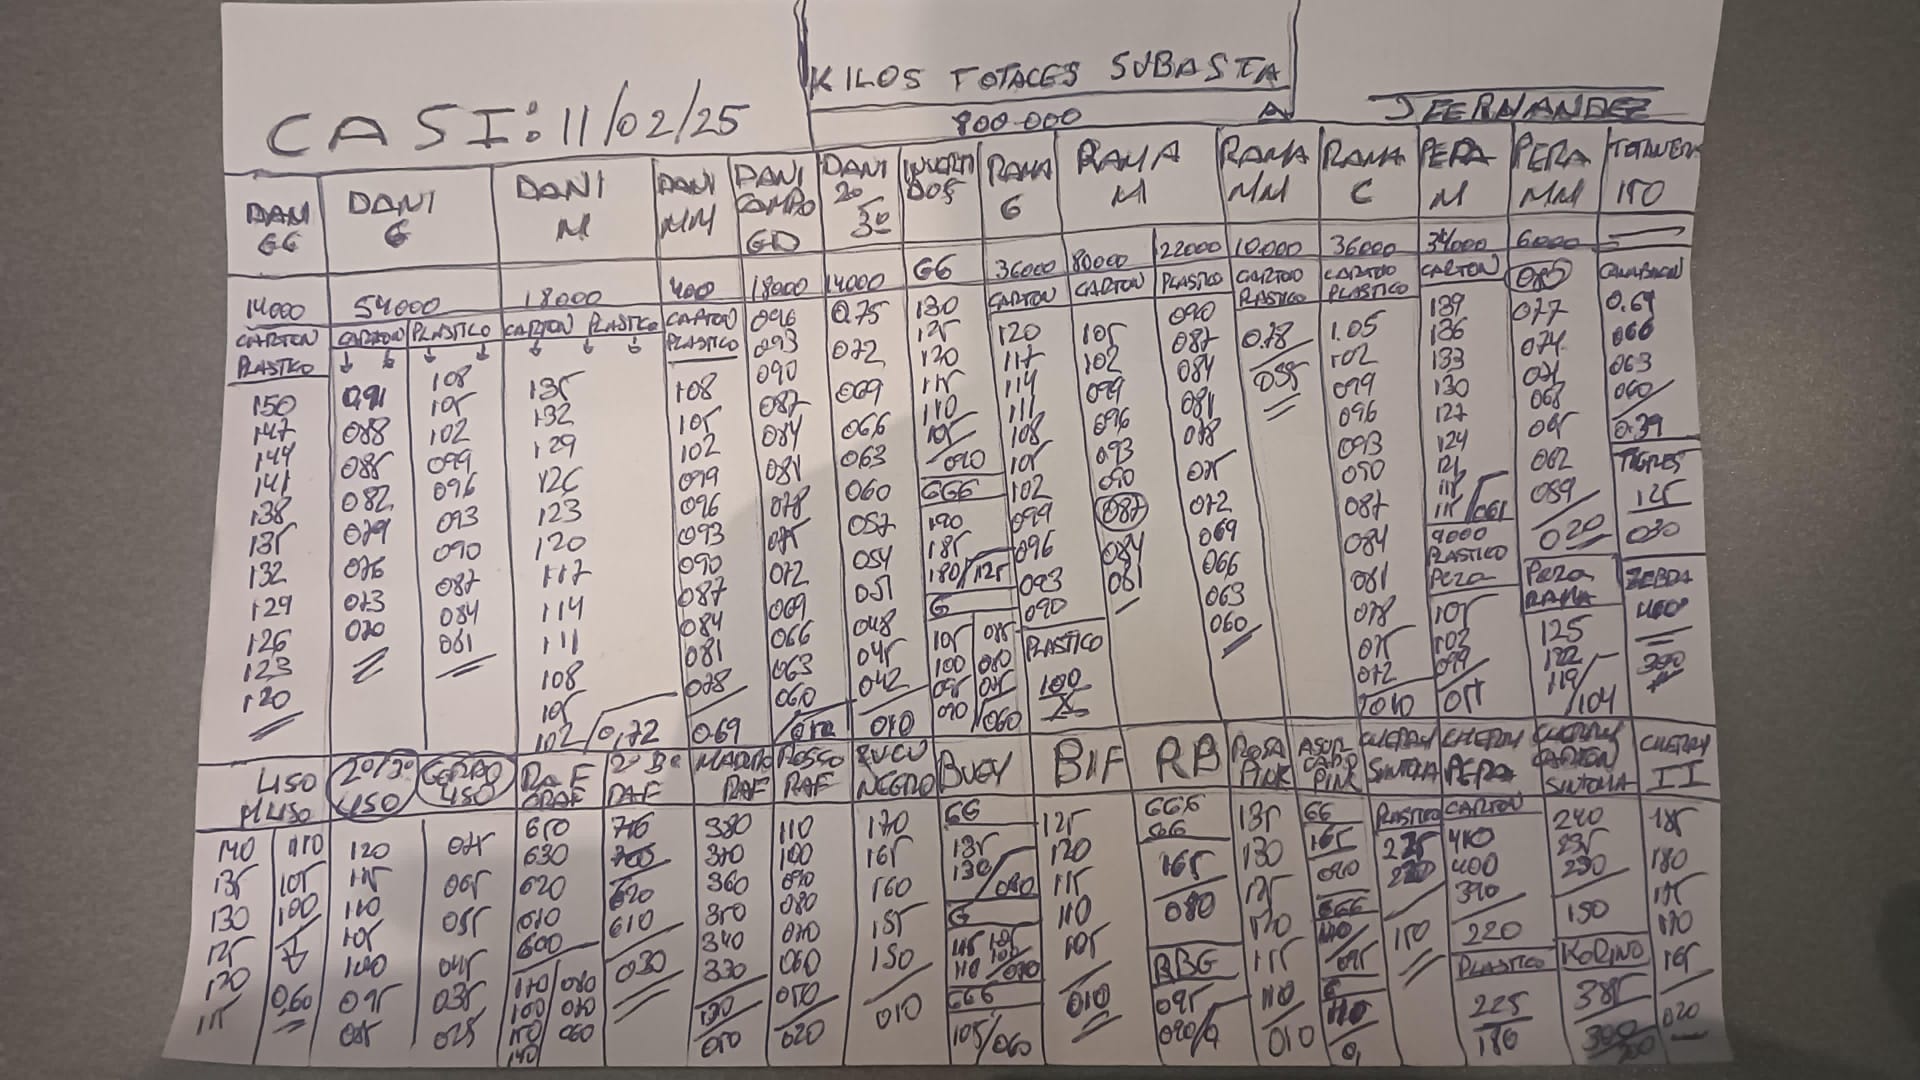 KILOS TOTALES SUBASTA
CASI: 11/02/25
800.000
A
J FERNANDEZ
DANI GG
DANI G
DANI M
DANI MM
DANI CAMPO GD
DANI 20 30
INVERTIDOS
RAMA G
RAMA M
RAMA MM
RAMA C
PERA M
PERA MM
150
14000 54000 18000 400 18000 14000 GG 36000 80000 22000 10.000 36000 34000 6000
CARTON PLASTICO
CARTON PLASTICO
CARTON PLASTICO
CARTON PLASTICO
CARTON
CARTON
PLASTICO
CARTON PLASTICO
CARTON PLASTICO
CARTON
150
147
144
141
138
135
132
129
126
123
120
091
088
085
082
079
076
073
070
108
105
102
099
096
093
090
087
084
081
135
132
129
126
123
120
117
114
111
108
105
102/0,72
108
105
102
099
096
093
090
087
084
081
078
0.69
096
093
090
087
084
081
078
075
072
069
066
063
060
0.75
072
069
066
063
060
057
054
051
048
045
042
010
130
125
120
115
110
105
090
GGG
190
185
180/125
G
105 085
100 080
095 075
090/060
120
117
114
111
108
105
102
099
096
093
090
PLASTICO
100
105
102
099
096
093
090
087
084
081
090
087
084
081
078
075
072
069
066
063
060
0.78
055
1.05
102
099
096
093
090
087
084
081
078
075
072
139
136
133
130
127
124
121
118
115/061
9000
PLASTICO
PERA
105
102
099
051
080
077
074
071
068
065
062
059
020
PERA RAMA
125
122
119/104
0.69
066
063
060
0.39
TIGRES
125
030
ZEBRA
400
300
LISO
M LISO
2º/3º LISO
CERRO LISO
RAF
GRAF
RAF
RAF
ROSSO RAF
NEGRO
BUEY
BIF
RB
ROSA PINK
PINK
CHERRY SINTOMA
CHERRY PERA
CHERRY CARTON SINTOMA
CHERRY II
140
135
130
125
120
115
110
105
100
0.60
120
115
110
105
100
095
085
075
065
055
045
035
025
650
630
620
610
600
170/080
160 070
150 060
140
620
610
030
380
370
360
350
340
330
050
110
100
090
080
070
060
050
020
170
165
160
155
150
010
GG
135
130/080
G
115 105
110 100/070
GGG
105/060
125
120
115
110
105
010
GGG
GG
165
080
RBG
095
090
135
130
125
120
115
110
010
GG
165
090
GGG
095
G
PLASTICO
225
150
CARTON
410
400
390
220
PLASTICO
225
180
240
235
230
150
KORINO
385
185
180
175
170
165
020